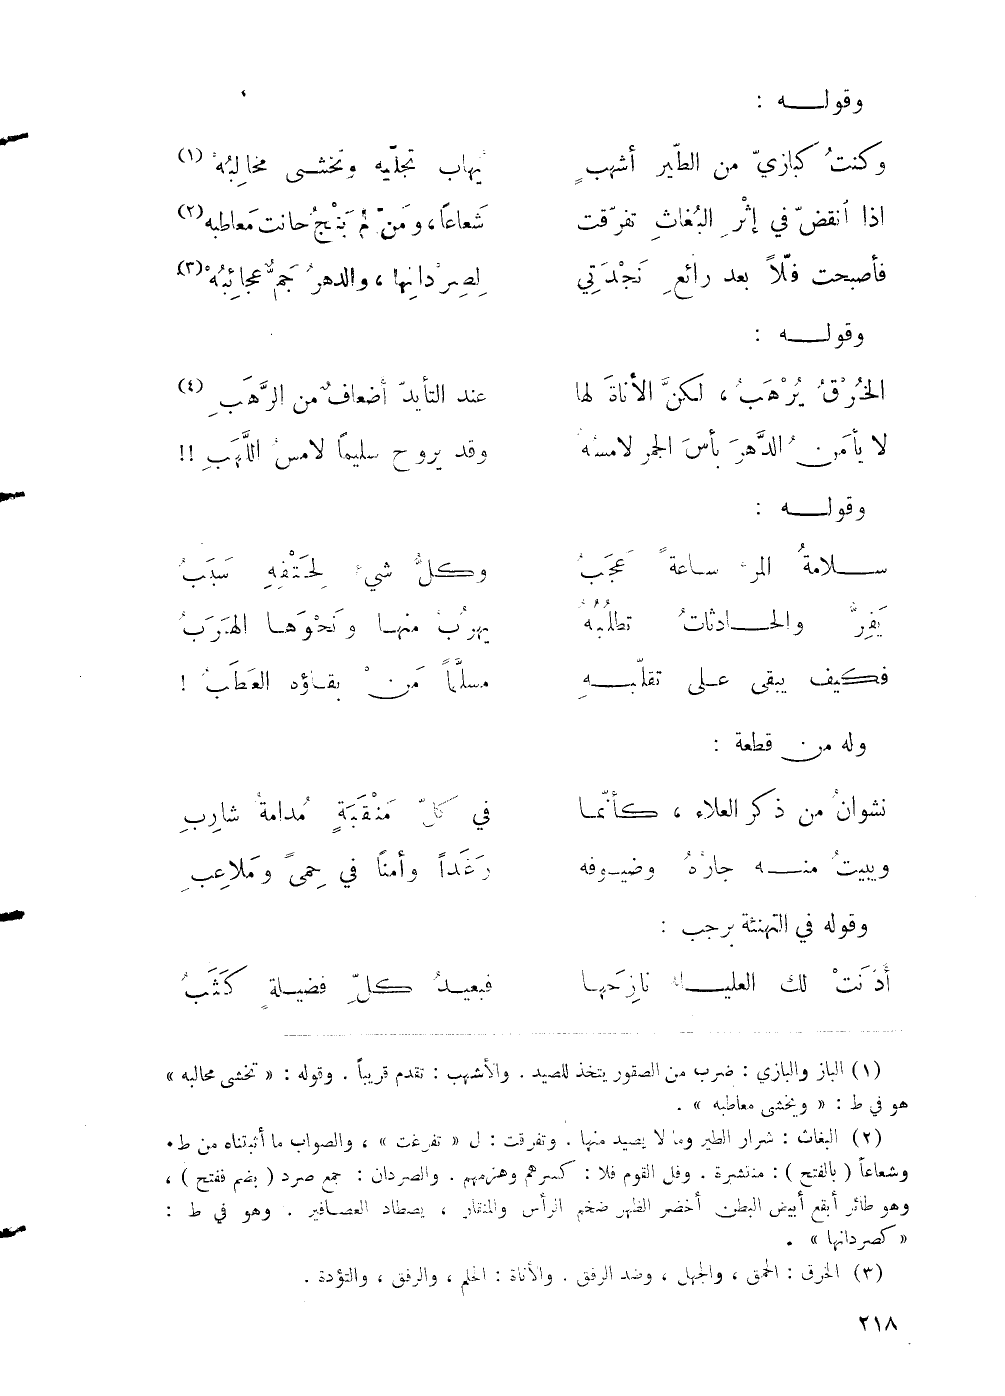 وقولـــــه :
وكنتُ كبازيّ من الطّير أشهبٍ يُهاب تجلّيه وتخشـى مخالِبُهْ (١)
اذا ٱنقضّ في إثْرِ البُغاثِ تفرّقت شَعاعًا، ومَنْ لم يَنْجُ حانت مَعاطبه (٢)
فأصبحت فلّاً بعد رائعِ نَجْدَتي لِصِرْدانِها ، والدهرُ جَمٌّ عجائبُهْ (٣)
وقولـــــه :
الخُرْقُ يُرْهَبُ ، لكنَّ الأناةَ لها عند التأيدّ أضعافٌ من الرَّهَبِ (٤)
لا يأمَنِ الدَّهرَ بأسَ الجمر لامسُهُ وقد يروح سليمًا لامسُ اللَّهَبِ !!
وقولـــــه :
ســـــلامةُ المرءِ ســاعةً عَجَبُ وكلُّ شيءٍ لِحَتْفِهِ سَبَبُ
يَفِرُّ والحـــــادثاتُ تطلُبُهُ يهرُبُ منهـا ونَحْوَهـا الهَرَبُ
فكيف يبقى علـى تقلّبـــــهِ مسلَّماً مَنْ بقـاؤه العَطَبُ !
وله من قطعة :
نشوانُ من ذكر العلاء ، كأنّمـا في كلّ مَنْقَبَةٍ مُدامةُ شارِبِ
ويبيتُ منـــــه جارُهُ وضيـوفه رَغَداً وأمنًا في حِمىً ومَلاعِبِ
وقوله في التهنئة برجب :
أدْنَتْ لك العليـــــاءُ نازِحَها فبعيـدُ كلِّ فضيلةٍ كَثَبُ
(١) الباز والبازي : ضرب من الصقور يتخذ للصيد . والأشهب : تقدم قريباً . وقوله : « تخشى مخالبه »
هو في ط : « ويخشى معاطبه » .
(٢) البغاث : شرار الطير وما لا يصيد منها . وتفرقت : ل « تفرغت » ، والصواب ما أثبتناه من ط .
وشعاعاً ( بالفتح ) : منتشرة . وفل القوم فلا : كسرهم وهزمهم . والصردان : جمع صرد ( بضم ففتح ) ،
وهو طائر أبقع أبيض البطن أخضر الظهر ضخم الرأس والمنقار ، يصطاد العصـافير . وهو في ط :
« كصردانها » .
(٣) الخرق : الحمق ، والجهل ، وضد الرفق . والأناة : الحلم ، والرفق ، والتؤدة .
٢١٨